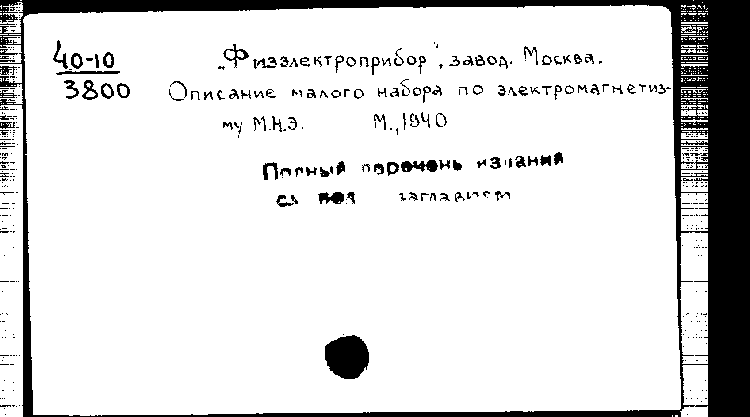 40-10
3800
„Физэлектроприбор", завод. Москва.
Описание малого набора по электромагнетиз-
му М.Н.Э. М., 1940
Полный перечень изданий
см. под заглавием